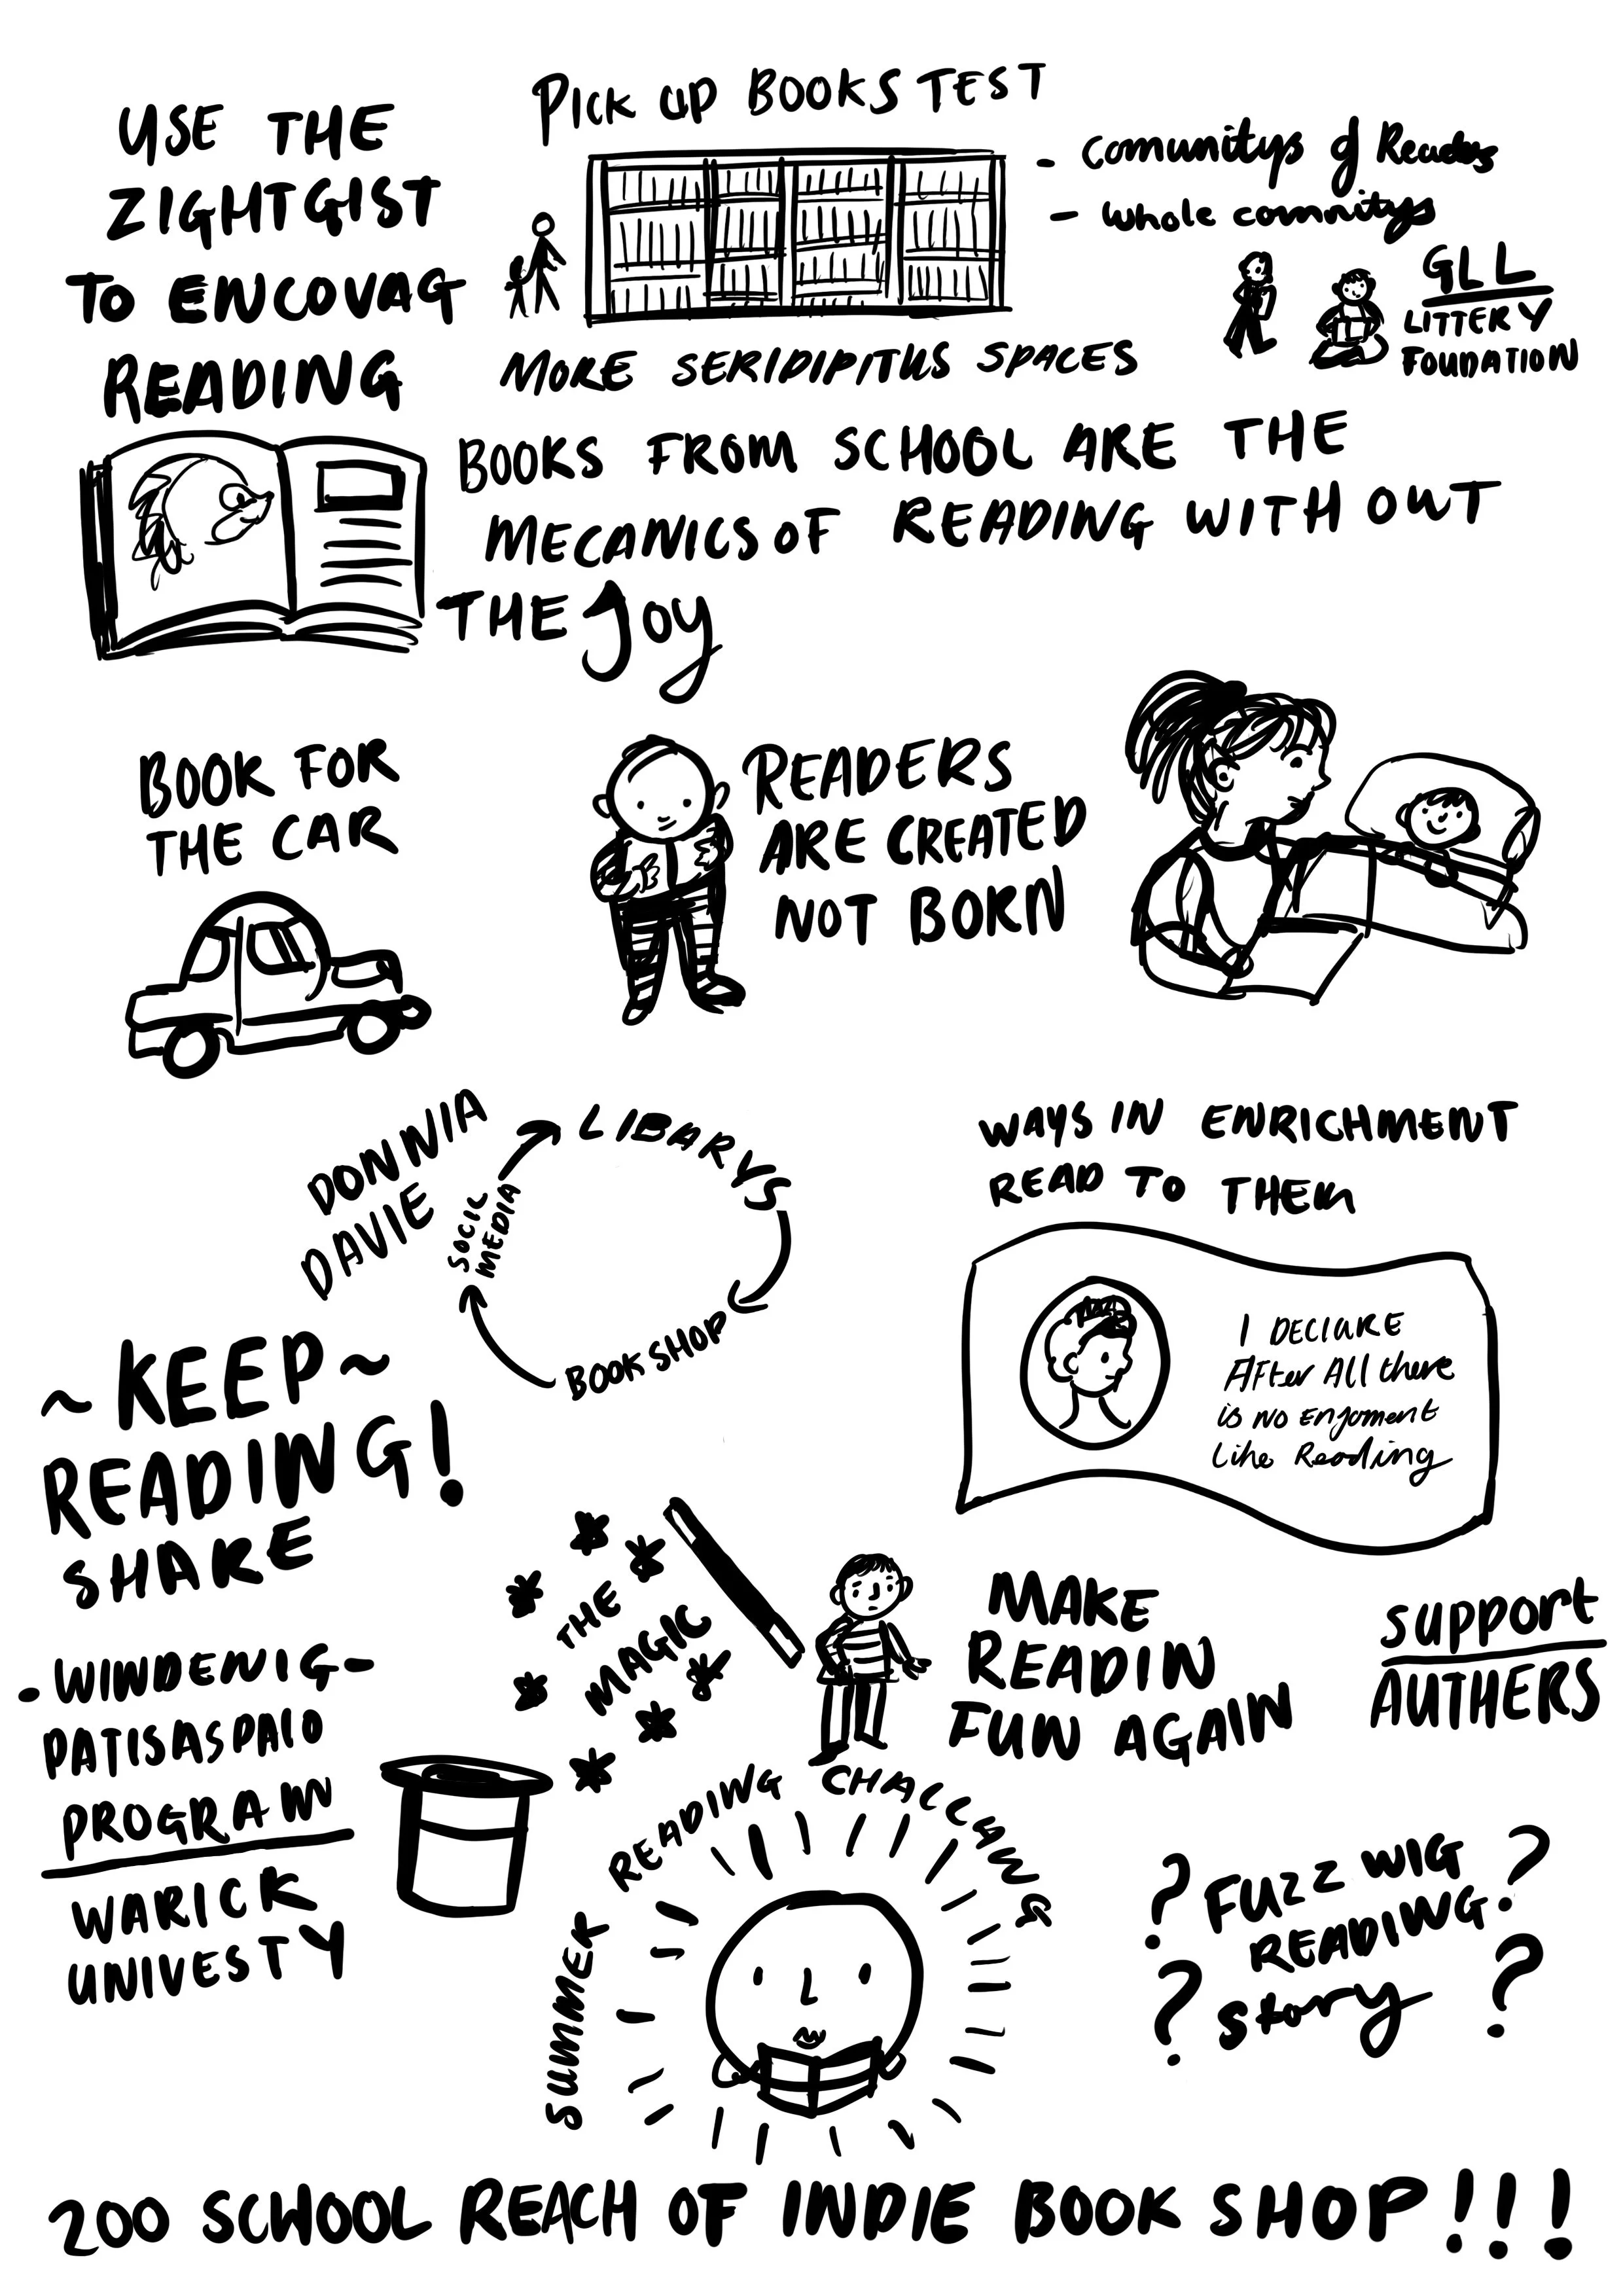 USE THE
ZIGHTGIST
TO ENCOVAG
READING
PICK UP BOOKS TEST
- COMUNITYS of Readers
- WHOLE COMNITYS
GLL
LITTERY
FOUDATION
MORE SERIDIPITUS SPACES
BOOKS FROM SCHOOL ARE THE
MECANICS OF READING WITH OUT
THE JOY
BOOK FOR
THE CAR
READERS
ARE CREATED
NOT BORN
DONNIA
DAVIE
LIBARYS
SOCIL
MEDIA
BOOK SHOP
WAYS IN ENRICHMENT
READ TO THEM
I DECLARE
AFter All there
is NO ENJOMENT
Like Reading
~KEEP~
READING!
SHARE
THE
MAGIC
MAKE
READIN
FUN AGAIN
SUPPORT
AUTHERS
- WINDENIG -
PATISASPALO
PROGRAM
WARICK
UNIVESTY
SUMMER
READING CHALLANG
? FUZZ WIG ?
READING
? Story ?
200 SCHOOL REACH OF INDIE BOOK SHOP!!!